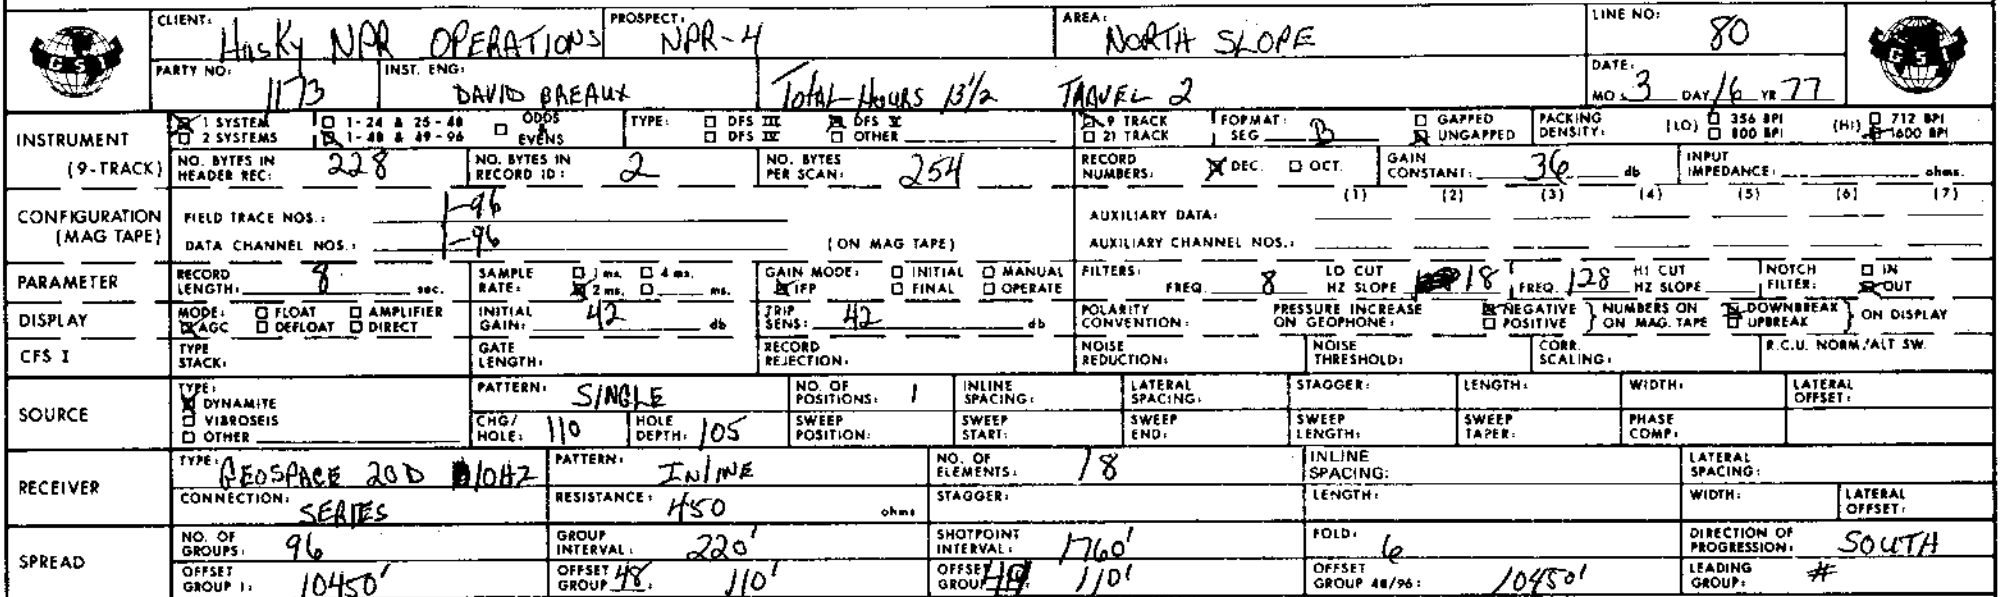 CLIENT: Husky NPR OPERATIONS PROSPECT: NPR-4 AREA: NORTH SLOPE LINE NO: 80
GSI GSI
PARTY NO: 1173 INST. ENG: DAVID BREAUX Total Hours 13 1/2 TRAVEL 2 DATE: MO 3 DAY 16 YR 77
INSTRUMENT (9-TRACK) 1 SYSTEM 1-24 & 25-48 ODDS & EVENS TYPE: DFS III DFS V 9 TRACK FORMAT: SEG B GAPPED PACKING DENSITY: (LO) 356 BPI (HI) 712 BPI
2 SYSTEMS 1-48 & 49-96 DFS IV OTHER 21 TRACK UNGAPPED 800 BPI 1600 BPI
NO. BYTES IN HEADER REC: 228 NO. BYTES IN RECORD ID: 2 NO. BYTES PER SCAN: 254 RECORD NUMBERS: DEC. OCT. GAIN CONSTANT: 36 db INPUT IMPEDANCE: ohms.
CONFIGURATION (MAG TAPE) (1) (2) (3) (4) (5) (6) (7)
FIELD TRACE NOS.: 1-96 AUXILIARY DATA:
DATA CHANNEL NOS.: 1-96 (ON MAG TAPE) AUXILIARY CHANNEL NOS.:
PARAMETER RECORD LENGTH: 8 sec. SAMPLE RATE: 1 ms. 4 ms. 2 ms. ms. GAIN MODE: INITIAL MANUAL IFP FINAL OPERATE FILTERS: FREQ. 8 LO CUT HZ SLOPE 18 FREQ. 128 HI CUT HZ SLOPE NOTCH FILTER: IN OUT
DISPLAY MODE: FLOAT AMPLIFIER AGC DEFLOAT DIRECT INITIAL GAIN: 42 db TRIP SENS: 42 db POLARITY CONVENTION: PRESSURE INCREASE ON GEOPHONE: NEGATIVE POSITIVE NUMBERS ON ON MAG. TAPE DOWNBREAK UPBREAK ON DISPLAY
CFS I TYPE STACK: GATE LENGTH: RECORD REJECTION: NOISE REDUCTION: NOISE THRESHOLD: CORR. SCALING: R.C.U. NORM/ALT SW.
SOURCE TYPE: DYNAMITE VIBROSEIS OTHER PATTERN: SINGLE NO. OF POSITIONS: 1 INLINE SPACING: LATERAL SPACING: STAGGER: LENGTH: WIDTH: LATERAL OFFSET:
CHG/HOLE: 110 HOLE DEPTH: 105 SWEEP POSITION: SWEEP START: SWEEP END: SWEEP LENGTH: SWEEP TAPER: PHASE COMP:
RECEIVER TYPE: GEOSPACE 20D 10HZ PATTERN: INLINE NO. OF ELEMENTS: 18 INLINE SPACING: LATERAL SPACING:
CONNECTION: SERIES RESISTANCE: 450 ohms STAGGER: LENGTH: WIDTH: LATERAL OFFSET:
SPREAD NO. OF GROUPS: 96 GROUP INTERVAL: 220' SHOTPOINT INTERVAL: 1760' FOLD: 6 DIRECTION OF PROGRESSION: SOUTH
OFFSET GROUP 1: 10450' OFFSET GROUP 48: 110' OFFSET GROUP 110' OFFSET GROUP 48/96: 10450' LEADING GROUP: #